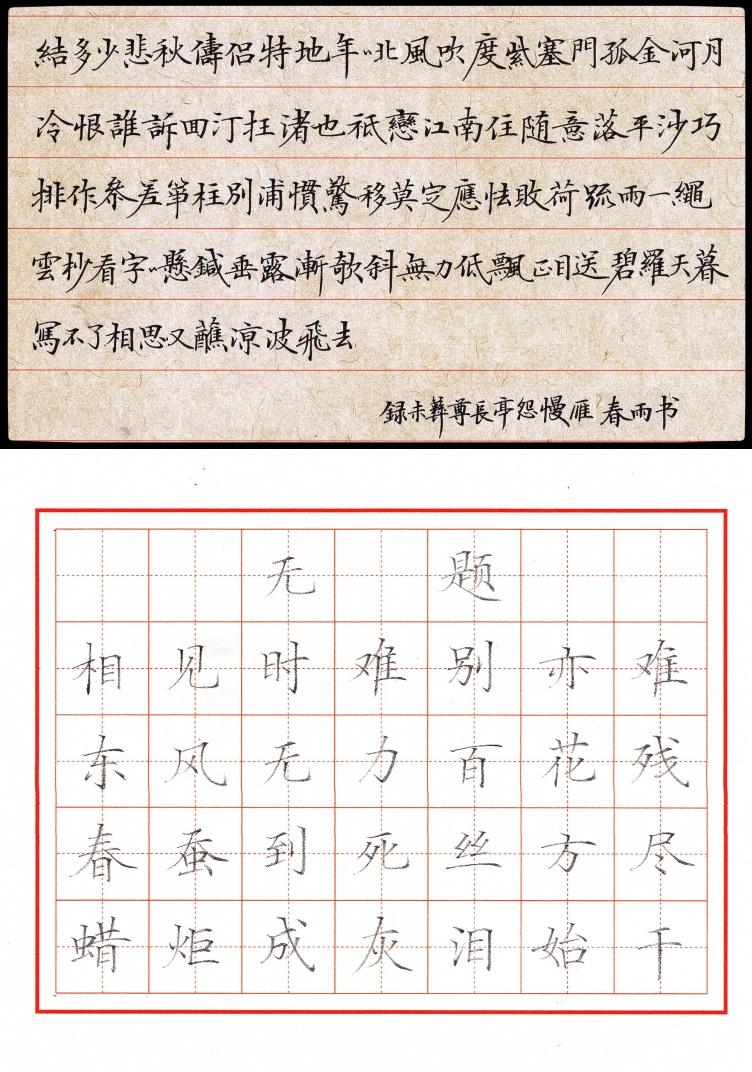 結多少悲秋儔侶特地年〃北風吹度紫塞門孤金河月
冷恨誰訴回汀枉渚也祇戀江南住随意落平沙巧
排作參差箏柱別浦慣驚移莫定應怯敗荷疏雨一繩
雲杪看字〃懸鍼垂露漸欹斜無力低飄正目送碧羅天暮
寫不了相思又蘸凉波飛去
録朱彝尊長亭怨慢雁 春雨书
无题
相见时难别亦难
东风无力百花残
春蚕到死丝方尽
蜡炬成灰泪始干